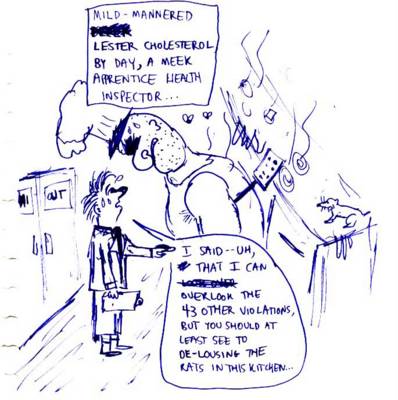 MILD-MANNERED
LESTER CHOLESTEROL
BY DAY, A MEEK
APPRENTICE HEALTH
INSPECTOR...
OUT
I SAID--UH,
THAT I CAN
OVERLOOK THE
43 OTHER VIOLATIONS,
BUT YOU SHOULD AT
LEAST SEE TO
DE-LOUSING THE
RATS IN THIS KITCHEN...